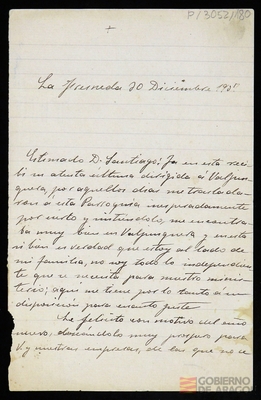 P/3053/180
+
La Fresneda 30 Diciembre 193
Estimado D. Santiago: Ya en esta reci-
bí su atenta última dirigida á Valjun-
quera, por aquellos dias me traslada-
ron á esta Parroquia inesperadamente
por cierto y sintiéndolo, me encontra-
ba muy bien en Valjunquera y en esta
si bien es verdad que estoy al lado de
mi familia, no soy todo lo independien-
te que se necesita para nuestro minis-
terio; aquí me tiene por lo tanto á su
disposición para cuanto guste
Le felicito con motivo del año
nuevo, deseándolo muy próspero para
V. y nuestras empresas, de las que no se
GOBIERNO
DE ARAGON